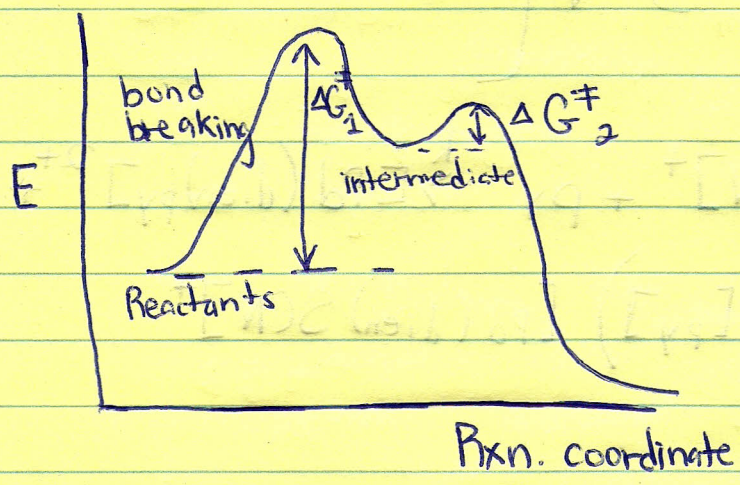 bond
breaking
ΔG‡1
ΔG‡2
E
intermediate
Reactants
Rxn. coordinate